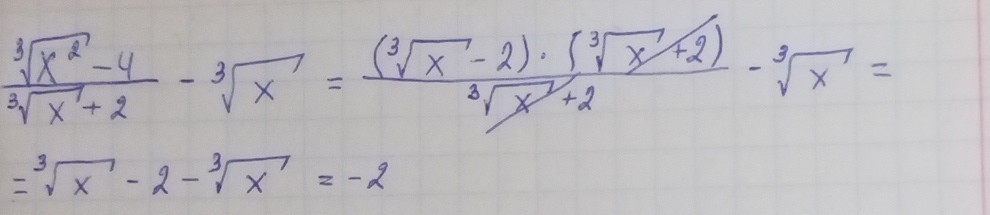 \frac{\sqrt[3]{x^2}-4}{\sqrt[3]{x}+2} - \sqrt[3]{x} = \frac{(\sqrt[3]{x}-2)\cdot(\sqrt[3]{x}+2)}{\sqrt[3]{x}+2} - \sqrt[3]{x} =
= \sqrt[3]{x} - 2 - \sqrt[3]{x} = -2